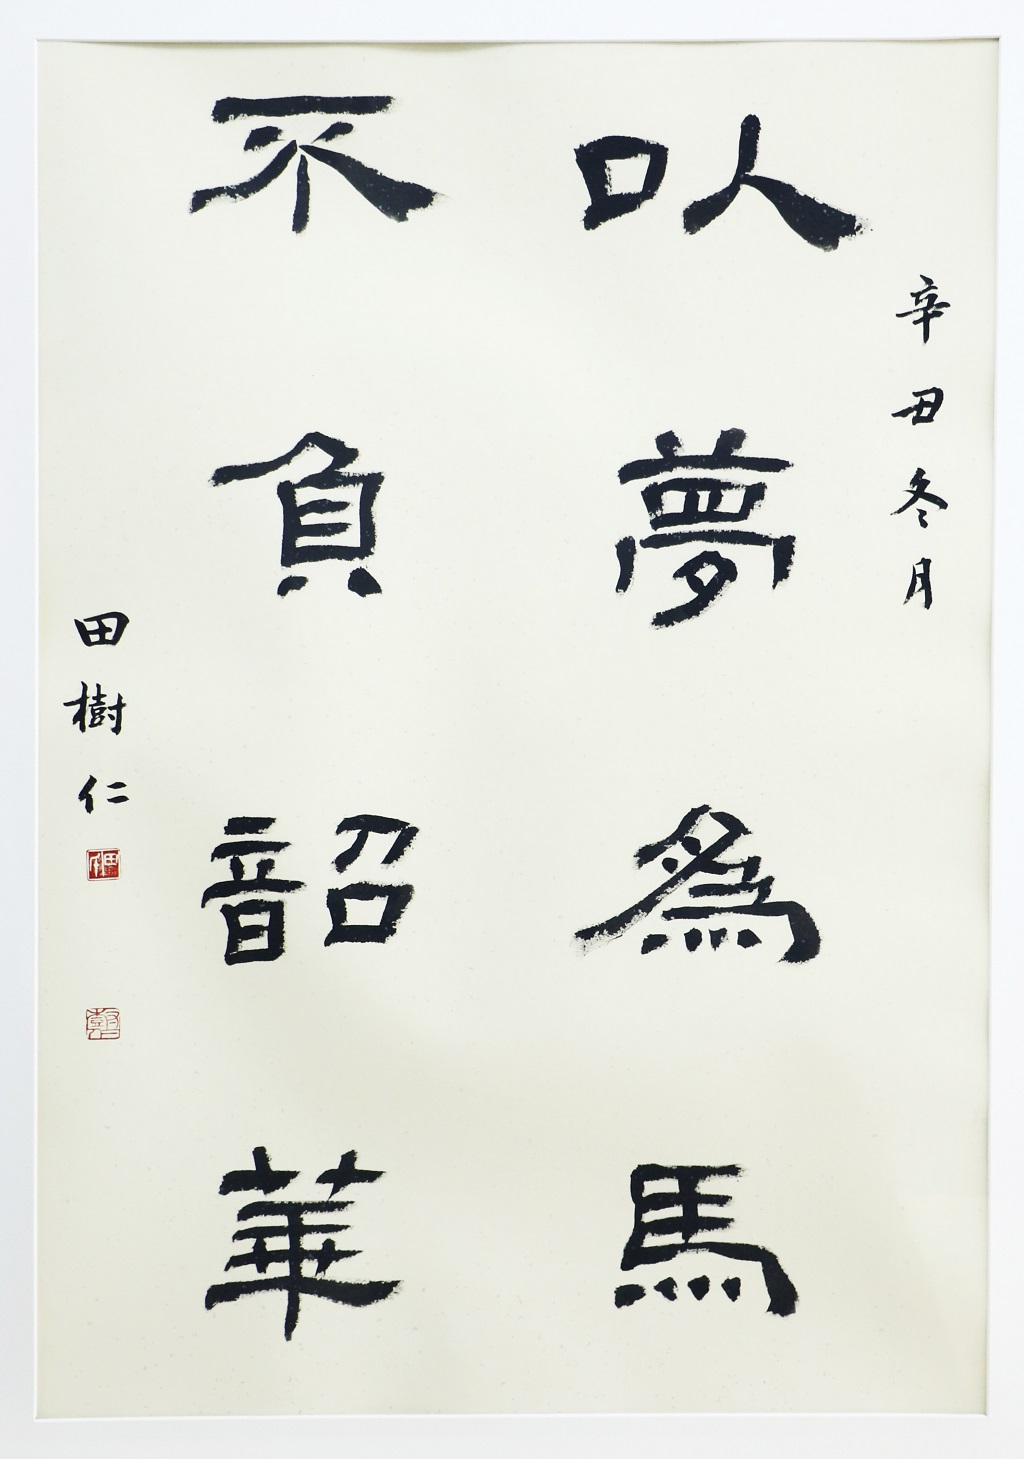 辛丑冬月
以夢為馬
不負韶華
田樹仁